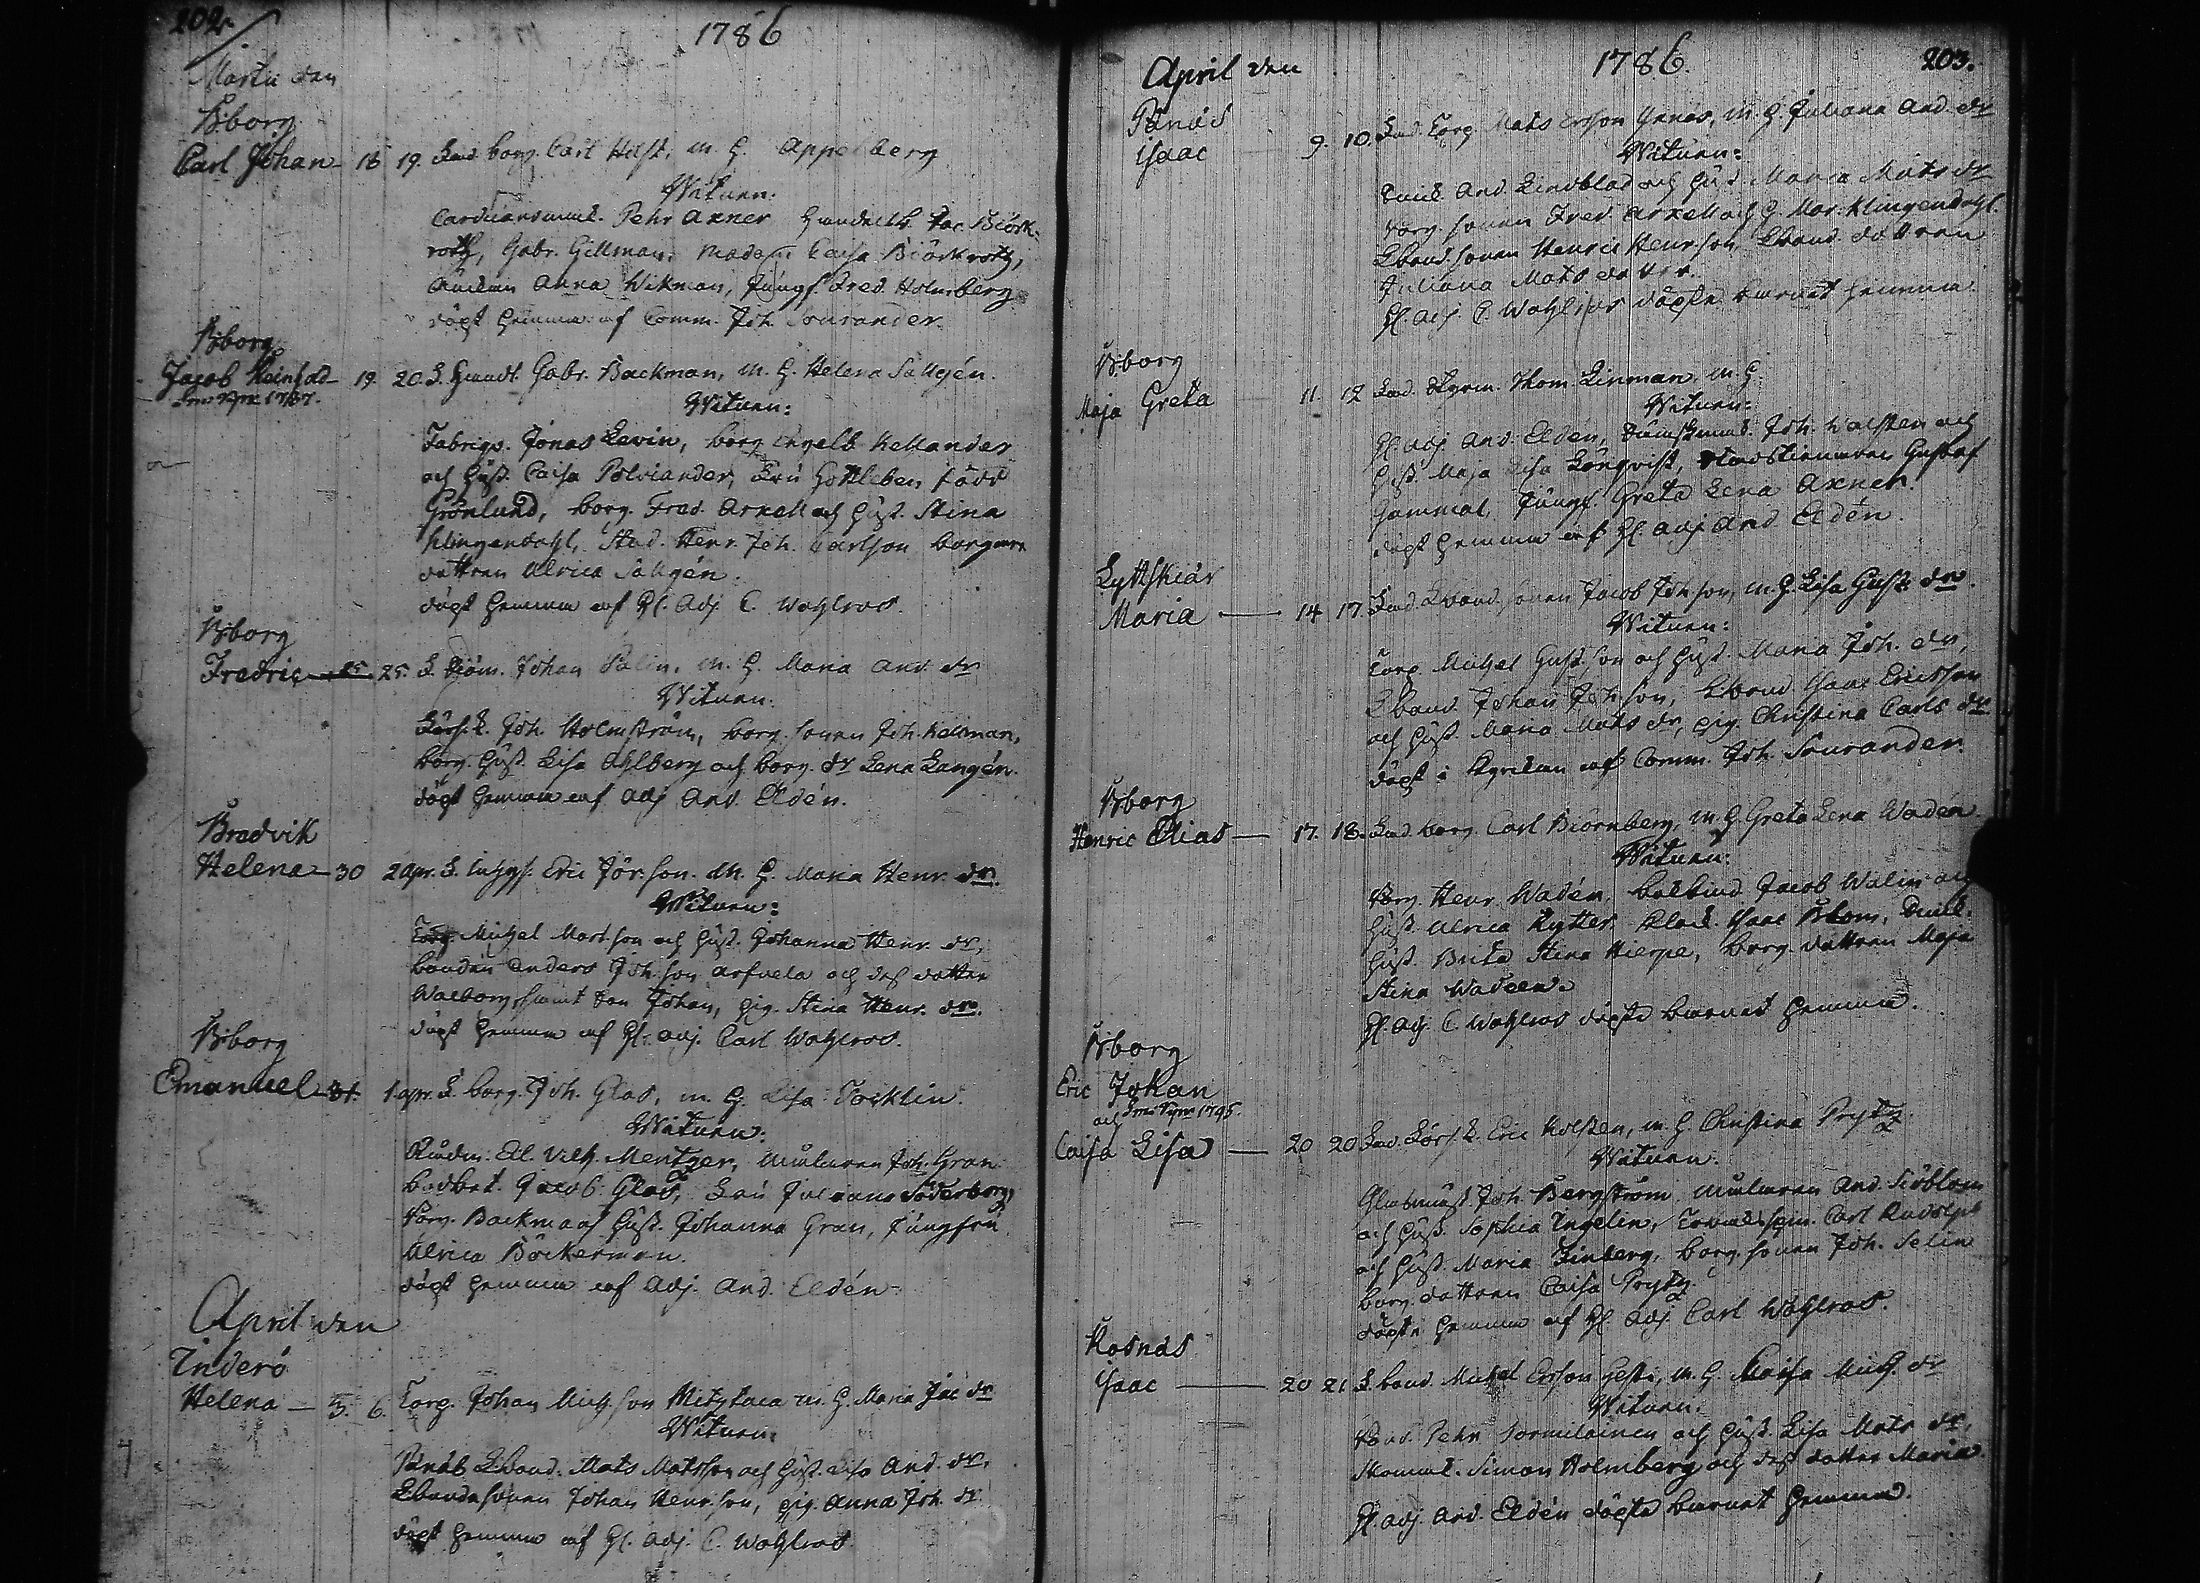 202.
1786
Martii den
B:borg
Carl Johan 18 19. Fad. borg. Carl Helst. m. H. Appelberg
Witnen:
Carduansmak. Pehr Axner Handelsb. Jac. Biörk-
roth, Gabr. Gillman, Madam Caisa Biörkroth,
Änkan Anna Wikman, Jungf. Fred. Holmberg
döpt hemma af Comm. Joh. Sourander.
B:borg
Jacob Reinhold 19. 20. F. Handl. Gabr. Backman, m. H. Helena Sallgén.
1787.
Witnen:
Fabriqs. Jonas Levin, borg. Engelb. Kellander
och Hust. Caisa Polviander, Fru Gottleben född
Grönlund, borg. Fred. Arxell och Hust. Stina
Klingendahl, Stud. Henr. Joh. Carlson borgare
dottren Ulrica Sallgén.
döpt hemma af H. Adj. C. Wahlroos.
B:borg
Fredric 25. 25. F. Johan Palin, m. H. Maria And. dr
Witnen:
Joh. Holmström, borg. sonen Joh. Kellman,
borg. Hust. Lisa Ahlberg och borg. dr Lena Langén.
döpt hemma af Adj. And. Eldén.
Bredvik
Helena 30 2 apr. F. Inhys. Eric Jör.son. M. H. Maria Henr. dr.
Witnen:
Torp. Michel Mart.son och Hust. Johanna Henr. dr,
bonden Anders Joh.son Arfvela och dess dotter
Walborg, samt son Johan, pig. Stina Henr. dr.
döpt hemma af H. adj. Carl Wahlroos.
B:borg
Emanuel 31. 1. apr. F. borg. Joh. Glas, m. H. Lisa Tocklin.
Witnen:
Rådm. Ed. Vilh. Mentzer, målaren Joh. Gran
Jacob Glad, Fru Juliana Söderborg,
borg. Backmans Hust. Johanna Gran, jungfru
Ulrica Böckerman.
döpt hemma af Adj. And. Eldén
April den
Inderö
Helena 5. 6. Torp. Johan Mich.son m. H. Maria Jac dr
Witnen:
Pänäs Lbond. Mats Matsson och Hust. Lisa And. dr,
Lbondesonen Johan Henr.son, pig. Anna Joh. dr
döpt hemma af H. Adj. C. Wahlroos
April den
1786.
203.
Pänäs
Isaac 9. 10. Fad. Torp. Mats Ersson Gräs, M. H. Juliana And. dr
Witnen:
And. Lindblad och Hust. Maria Mats dr
borg. sonen Fred. Arxell och H. Mar. Klingendahl.
Lbond.sonen Henric Henr.son, Lbond. dottren
Juliana Mats dotter.
H. Adj. C. Wahlroos döpte barnet hemma.
B:borg
Maja Greta 11. 12 Fad. Styrm. Thom. Linman, m. H.
Witnen:
H. adj. And. Eldén, Joh. Wahlsten och
Hust. Maja Lisa Lönqvist, Stadstienaren Gustaf
Gammal, Jungf. Greta Lena Axner.
döpt hemma af H. adj. And Eldén.
Lyttskiär
Maria 14 17. Fad. Lbond.sonen Jacob Joh.son, m. H. Lisa Gust. dr.
Witnen:
Torp. Michel Gust.son och Hust. Maria Joh. dr,
Lbond Johan Joh.son, Lbond Isaac Ericsson
och Hust. Maria Mats dr, pig. Christina Carls dr.
döpt i Kyrckan af Comm. Joh. Sourander.
B:borg
Henric Elias 17. 18. Fad. borg. Carl Biörnberg, m. H. Greta Lena Wadén.
Witnen:
borg. Henr. Wadén, bokbind. Jacob Walin och
Hust. Ulrica Rytter. Isaac Blom,
Hust. Brita Stina Hierpe, borg. dottren Maja
Stina Wadeen.
H. Adj. C. Wahlroos döpte barnet hemma.
B:borg
Eric Johan
och 1795.
Caisa Lisa 20 20 Fad. Eric Holsten, m. H. Christina Prytz
Witnen:
Glasmäst. Joh. Bergström, målaren And. Siöblom
och Hust. Sophia Ingelin, Carl Rudolph
och Hust. Maria Zinberg, borg. sonen Joh. Selin
borg. dottren Caisa Prytz.
döpte hemma af H. Adj. Carl Wahlroos.
Kosnäs
Isaac 20 21 F. bond. Michel Ersson, m. H. Caisa Mich. dr
Witnen.
Bond. Pehr Sormilainen och Hust. Lisa Mats dr,
Skomak. Simon Holmberg och dess dotter Maria
H. adj. And. Eldén döpte barnet hemma.